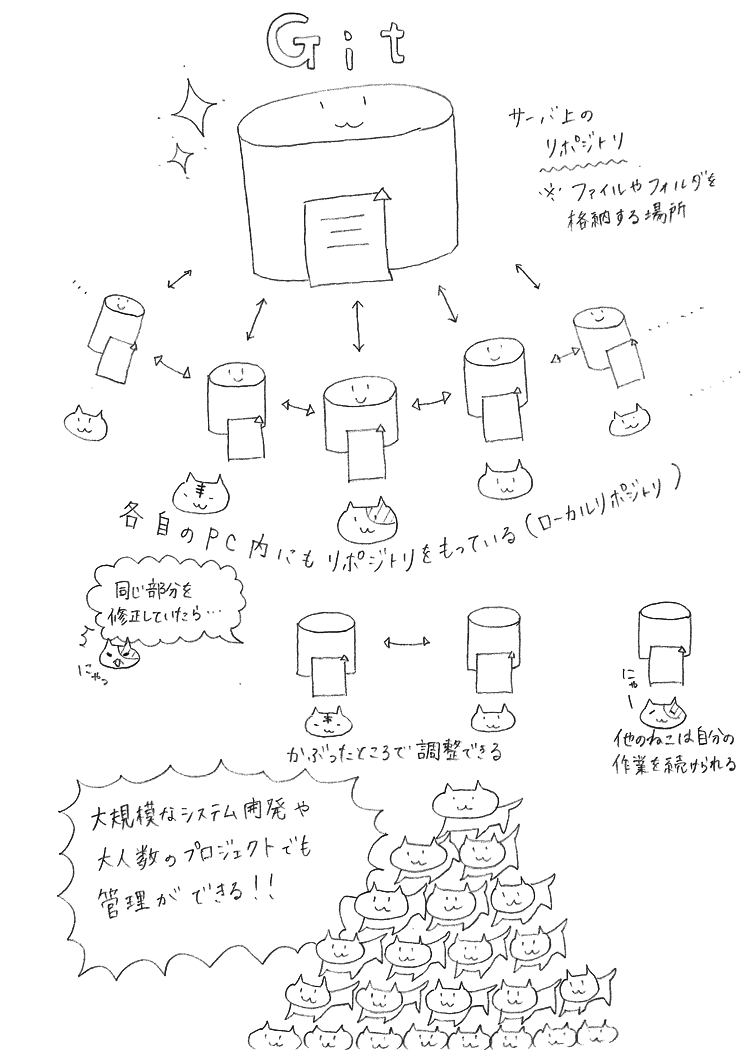 Git
サーバ上の
リポジトリ
※ ファイルやフォルダを
格納する場所
各自のPC内にもリポジトリをもっている(ローカルリポジトリ)
同じ部分を
修正していたら…
にゃっ
にゃー
かぶったところで調整できる
他のねこは自分の
作業を続けられる
大規模なシステム開発や
大人数のプロジェクトでも
管理ができる!!